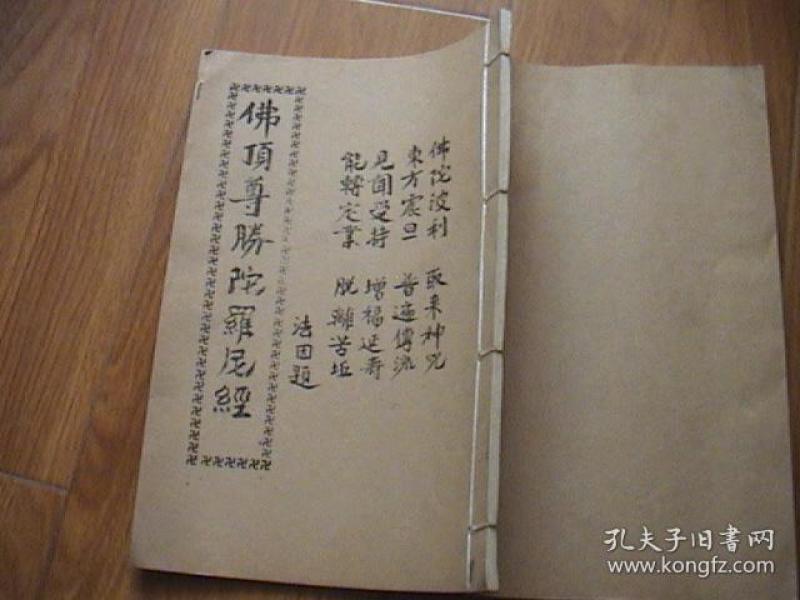 佛陀波利 取来神咒
東方震旦 普遍傳流
見聞受持 增福延寿
能轉定業 脱離苦垢
法因題
佛頂尊勝陀羅尼經
孔夫子旧書网
www.kongfz.com